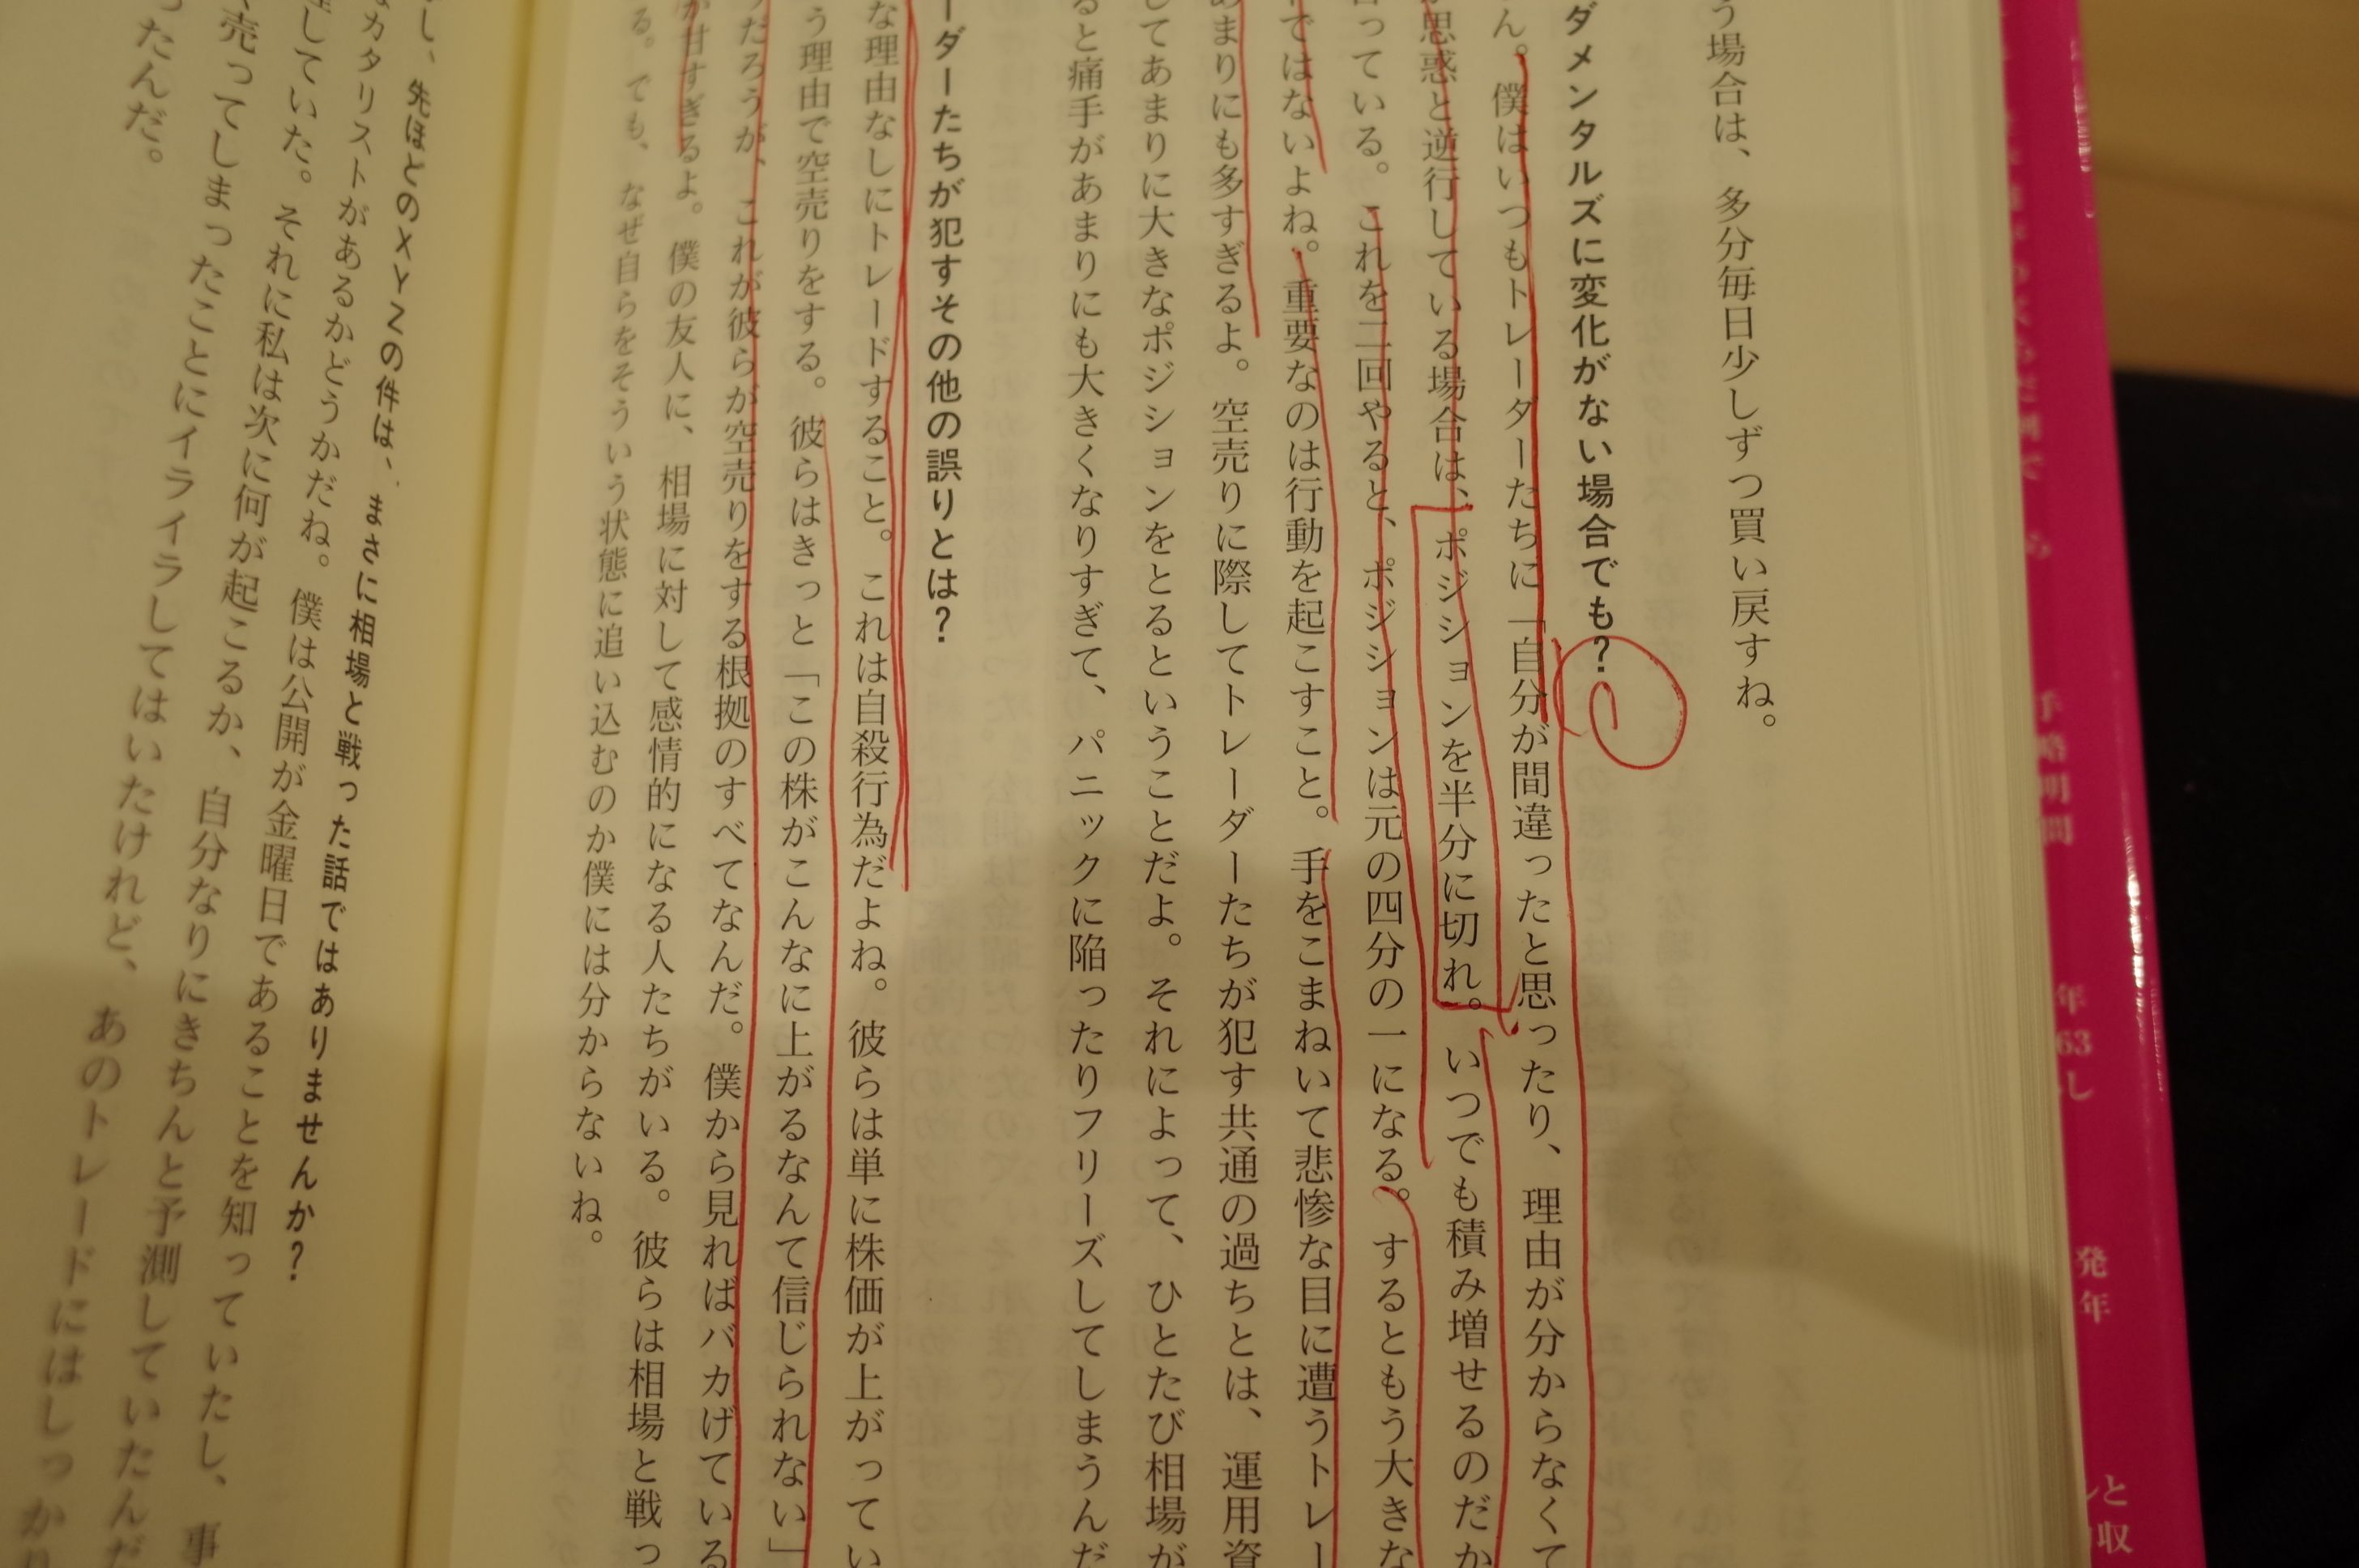 う場合は、多分毎日少しずつ買い戻すね。
ダメンタルズに変化がない場合でも?
ん。僕はいつもトレーダーたちに「自分が間違ったと思ったり、理由が分からなくて
思惑と逆行している場合は、ポジションを半分に切れ。いつでも積み増せるのだか
っている。これを二回やると、ポジションは元の四分の一になる。するともう大きな
ではないよね。重要なのは行動を起こすこと。手をこまねいて悲惨な目に遭うトレー
あまりにも多すぎるよ。空売りに際してトレーダーたちが犯す共通の過ちとは、運用資
してあまりに大きなポジションをとるということだよ。それによって、ひとたび相場が
ると痛手があまりにも大きくなりすぎて、パニックに陥ったりフリーズしてしまうんだ
ーダーたちが犯すその他の誤りとは?
な理由なしにトレードすること。これは自殺行為だよね。彼らは単に株価が上がってい
う理由で空売りをする。彼らはきっと「この株がこんなに上がるなんて信じられない」
っだろうが、これが彼らが空売りをする根拠のすべてなんだ。僕から見ればバカげている
が甘すぎるよ。僕の友人に、相場に対して感情的になる人たちがいる。彼らは相場と戦っ
る。でも、なぜ自らをそういう状態に追い込むのか僕には分からないね。
し、先ほどのXYZの件は、まさに相場と戦った話ではありませんか?
カタリストがあるかどうかだね。僕は公開が金曜日であることを知っていたし、事
していた。それに私は次に何が起こるか、自分なりにきちんと予測していたんだ
売ってしまったことにイライラしてはいたけれど、あのトレードにはしっかり
ったんだ。
年
63
し
発
年
と
収